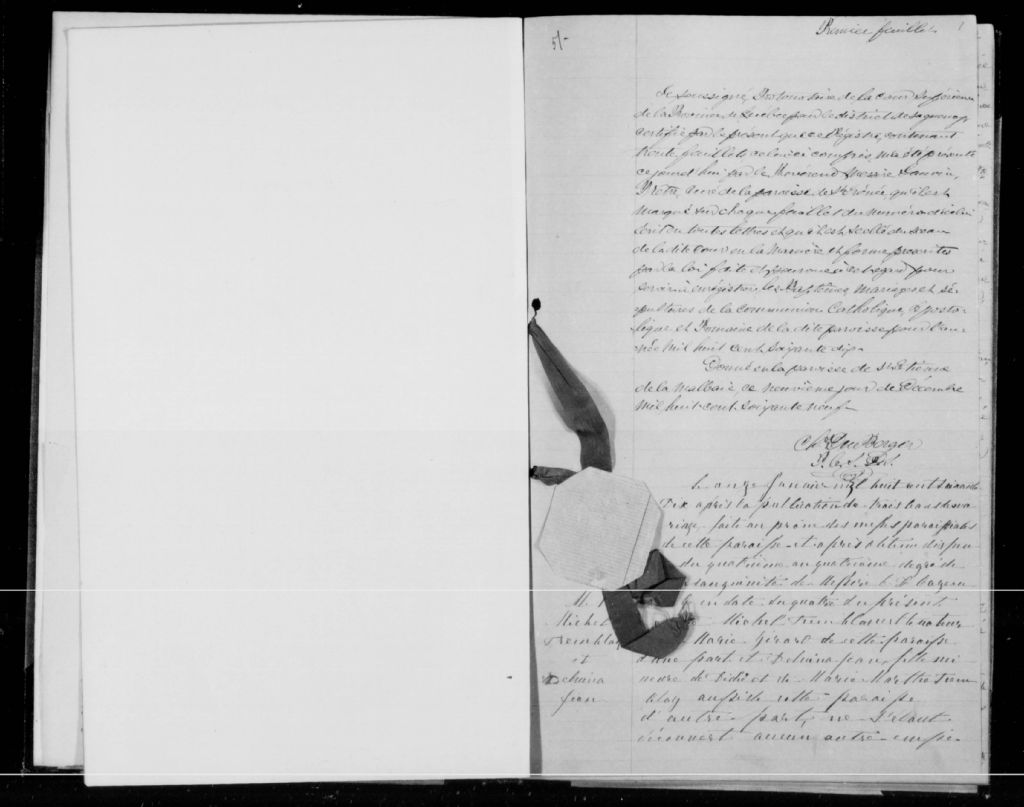 Premier feuillet
1
5/-
Je soussigné, Protonotaire de la Cour Supérieure
de la Province de Québec pour le district de Saguenay
certifie par le présent que ce Régistre, contenant
trente feuillets celui ici compris, m'a été présenté
ce jourd'hui par le Révérend Messire
Ptre, Curé de la paroisse de St Irénée, qu'il est
marqué sur chaque feuillet du numéro d'icelui
écrit en toutes lettres et qu'il est scellé du sceau
de la dite Cour en la manière et forme prescrites
par la loi faite et pourvue à cet égard pour
servir à enrégistrer les Baptêmes, Mariages et sé-
pultures de la communion Catholique, Aposto-
lique et Romaine de la dite paroisse pour l'an-
née mil huit cent soixante dix.
Donné en la paroisse de St Etienne
de la Malbaie, ce neuvième jour de Décembre
mil huit cent soixante neuf.
Chs DuBerger
P. C. S. D. S.
Le onze Janvier mil huit cent soixante
Dix après la publication de trois bans de ma
riage faite au prône des messes paroissiales
de cette paroisse et après obtenu dispense
du quatrième au quatrième degré de
sanguinité de Messire
en date du quatre du présent
M.
Michel
Tremblay
et
Dehina
Jean
Michel Tremblay
Marie Girard de cette paroisse
d'une part et Dehina Jean, fille mi-
neure de Didié et de Marie Marthe Trem
blay aussi de cette paroisse
d'autre part, ne s'étant
découvert aucun autre empê-